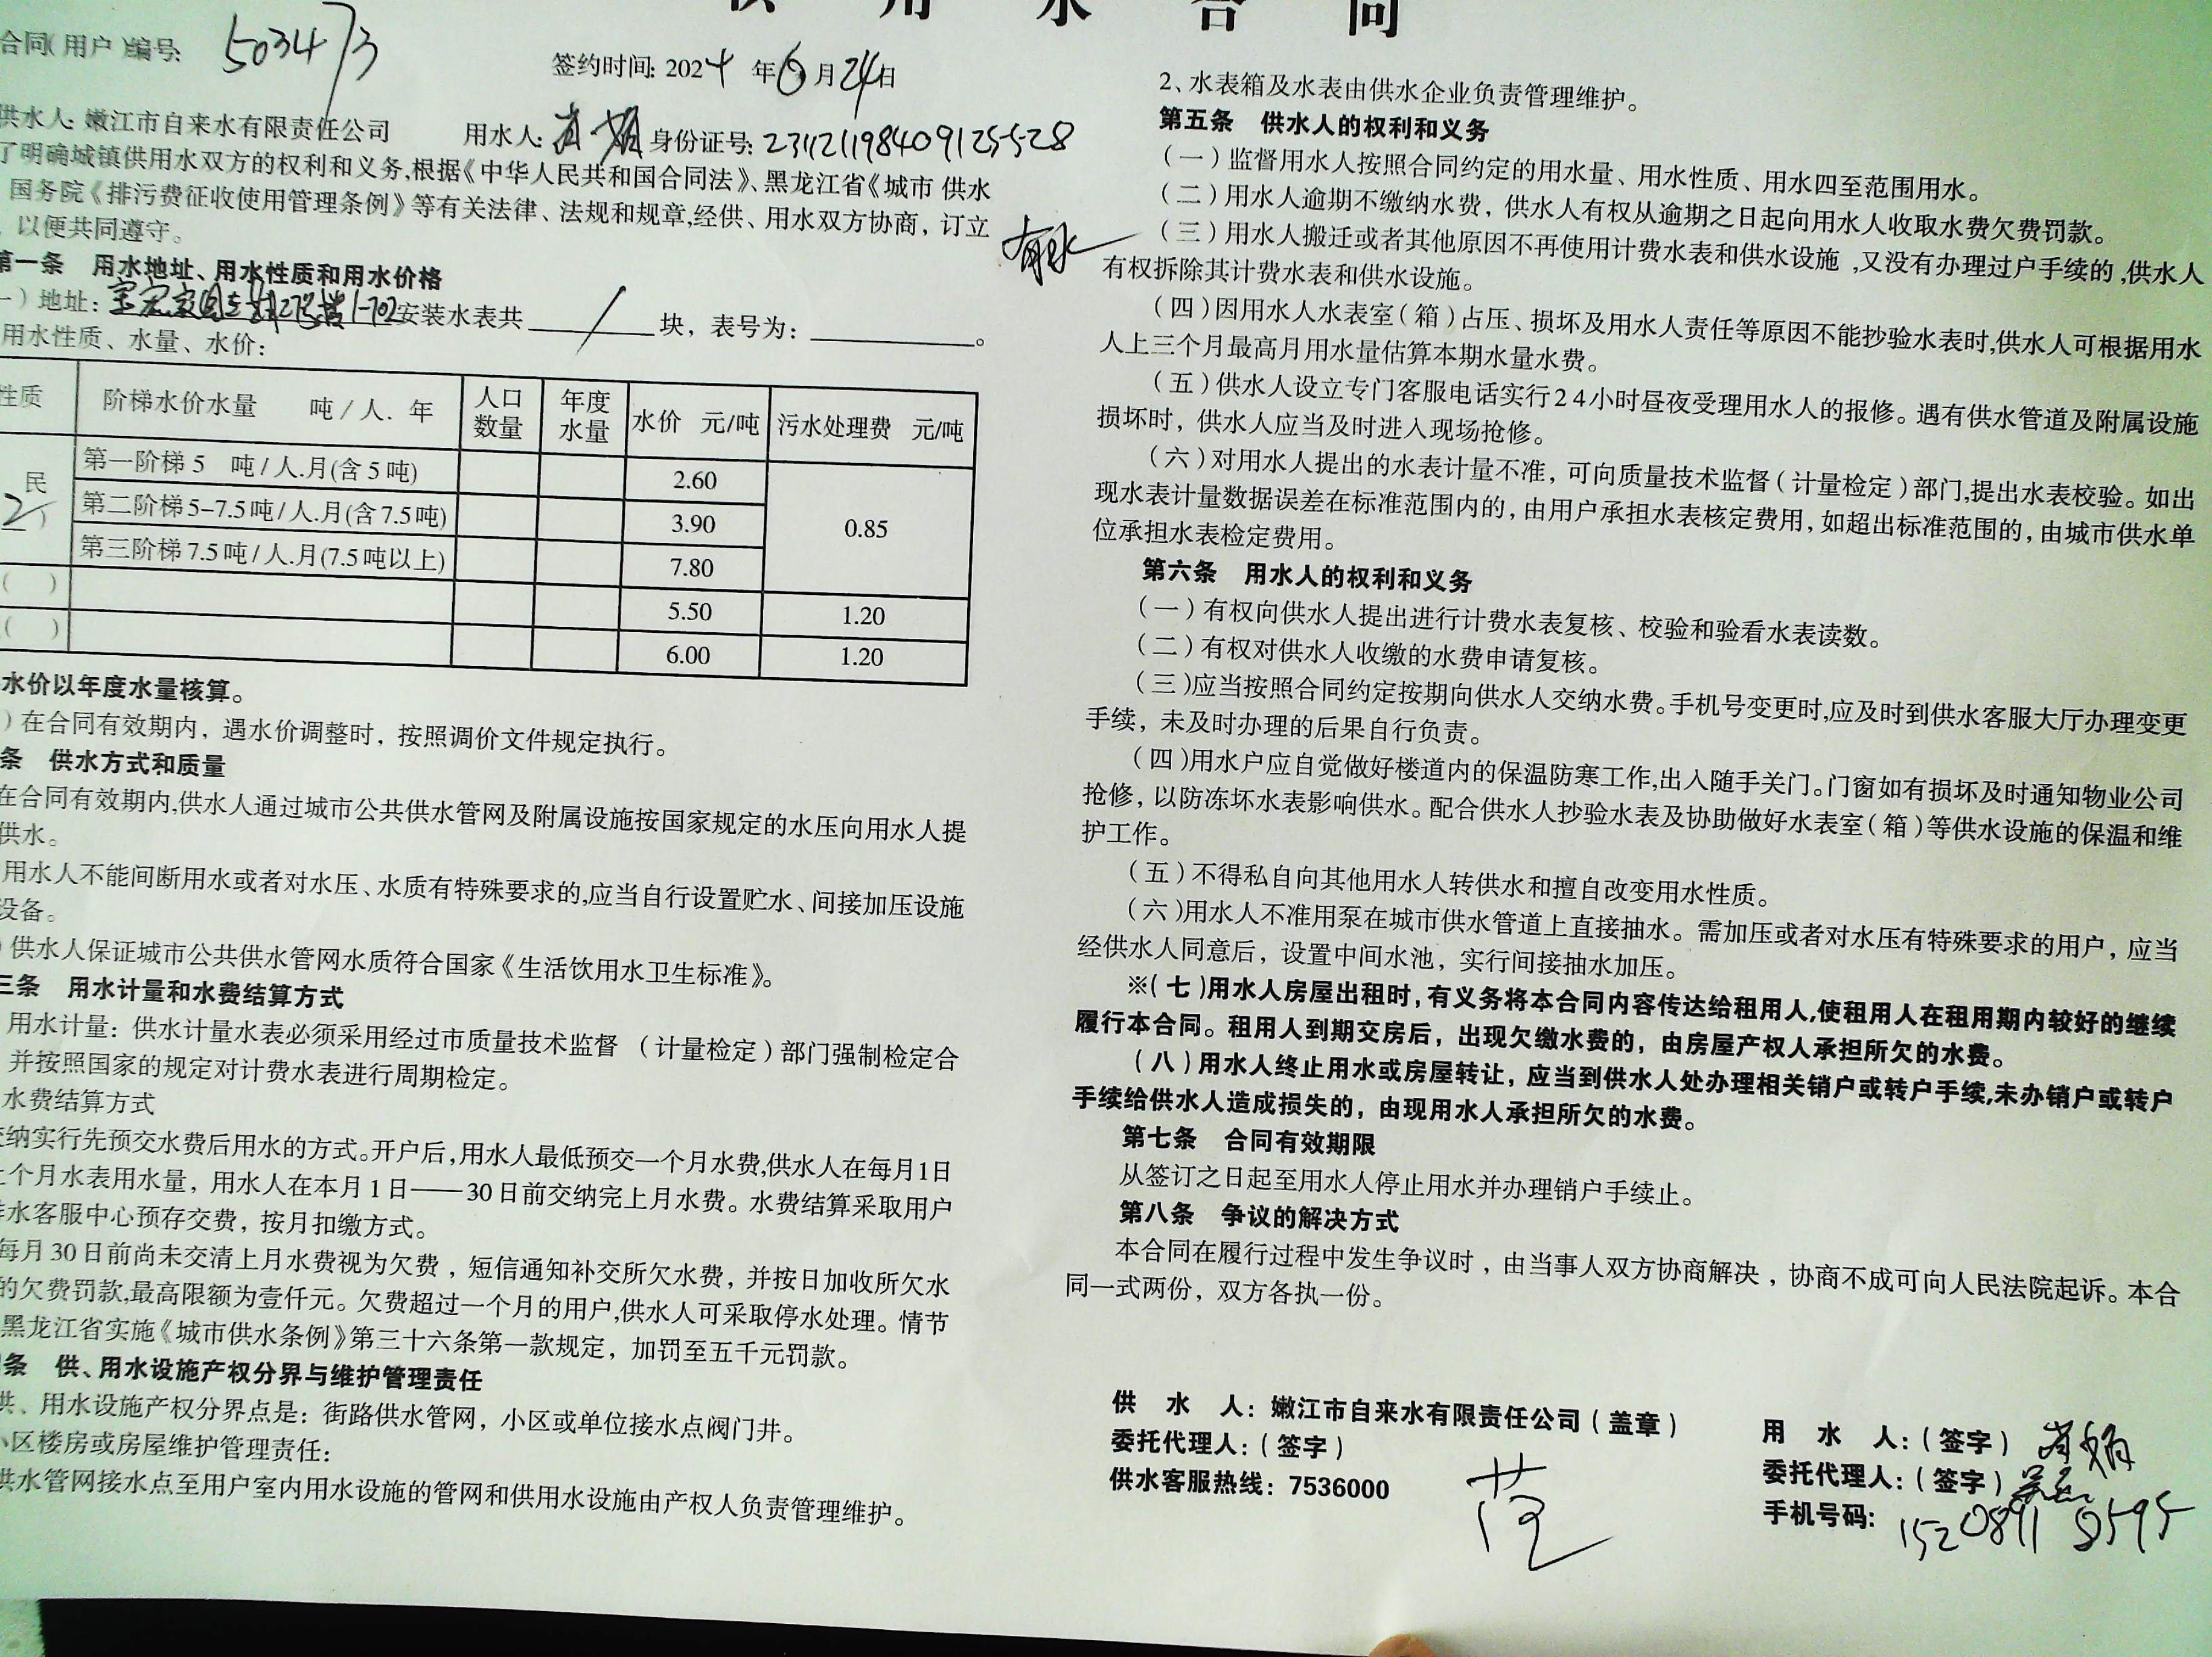 供 用 水 合 同
合同(用户)编号: 503473
签约时间: 2024 年 6 月 24 日
供水人: 嫩江市自来水有限责任公司 用水人: 身份证号: 231121198409125528
了明确城镇供用水双方的权利和义务,根据《中华人民共和国合同法》、黑龙江省《城市 供水
国务院《排污费征收使用管理条例》等有关法律、法规和规章,经供、用水双方协商，订立
，以便共同遵守。
第一条 用水地址、用水性质和用水价格
一）地址： 1-702 安装水表共 / 块，表号为：。
用水性质、水量、水价：
性质 阶梯水价水量 吨/人.年 人口数量 年度水量 水价 元/吨 污水处理费 元/吨
民 第一阶梯 5 吨/人.月(含 5 吨) 2.60
2 ) 第二阶梯 5-7.5 吨/人.月(含 7.5 吨) 3.90 0.85
第三阶梯 7.5 吨/人.月(7.5 吨以上) 7.80
( ) 5.50 1.20
( ) 6.00 1.20
水价以年度水量核算。
）在合同有效期内，遇水价调整时，按照调价文件规定执行。
条 供水方式和质量
在合同有效期内,供水人通过城市公共供水管网及附属设施按国家规定的水压向用水人提
供水。
用水人不能间断用水或者对水压、水质有特殊要求的,应当自行设置贮水、间接加压设施
设备。
）供水人保证城市公共供水管网水质符合国家《生活饮用水卫生标准》。
三条 用水计量和水费结算方式
用水计量：供水计量水表必须采用经过市质量技术监督 （计量检定）部门强制检定合
并按照国家的规定对计费水表进行周期检定。
水费结算方式
交纳实行先预交水费后用水的方式。开户后,用水人最低预交一个月水费,供水人在每月1日
上个月水表用水量，用水人在本月 1 日——30 日前交纳完上月水费。水费结算采取用户
水客服中心预存交费，按月扣缴方式。
每月 30 日前尚未交清上月水费视为欠费，短信通知补交所欠水费，并按日加收所欠水
的欠费罚款,最高限额为壹仟元。欠费超过一个月的用户,供水人可采取停水处理。情节
黑龙江省实施《城市供水条例》第三十六条第一款规定，加罚至五千元罚款。
条 供、用水设施产权分界与维护管理责任
供、用水设施产权分界点是：街路供水管网，小区或单位接水点阀门井。
小区楼房或房屋维护管理责任：
供水管网接水点至用户室内用水设施的管网和供用水设施由产权人负责管理维护。
2、水表箱及水表由供水企业负责管理维护。
第五条 供水人的权利和义务
（一）监督用水人按照合同约定的用水量、用水性质、用水四至范围用水。
（二）用水人逾期不缴纳水费，供水人有权从逾期之日起向用水人收取水费欠费罚款。
（三）用水人搬迁或者其他原因不再使用计费水表和供水设施,又没有办理过户手续的,供水人
有权拆除其计费水表和供水设施。
（四）因用水人水表室（箱）占压、损坏及用水人责任等原因不能抄验水表时,供水人可根据用水
人上三个月最高月用水量估算本期水量水费。
（五）供水人设立专门客服电话实行24小时昼夜受理用水人的报修。遇有供水管道及附属设施
损坏时，供水人应当及时进入现场抢修。
（六）对用水人提出的水表计量不准，可向质量技术监督（计量检定）部门,提出水表校验。如出
现水表计量数据误差在标准范围内的，由用户承担水表核定费用，如超出标准范围的，由城市供水单
位承担水表检定费用。
第六条 用水人的权利和义务
（一）有权向供水人提出进行计费水表复核、校验和验看水表读数。
（二）有权对供水人收缴的水费申请复核。
（三）应当按照合同约定按期向供水人交纳水费。手机号变更时,应及时到供水客服大厅办理变更
手续，未及时办理的后果自行负责。
（四）用水户应自觉做好楼道内的保温防寒工作,出入随手关门。门窗如有损坏及时通知物业公司
抢修，以防冻坏水表影响供水。配合供水人抄验水表及协助做好水表室（箱）等供水设施的保温和维
护工作。
（五）不得私自向其他用水人转供水和擅自改变用水性质。
（六）用水人不准用泵在城市供水管道上直接抽水。需加压或者对水压有特殊要求的用户，应当
经供水人同意后，设置中间水池，实行间接抽水加压。
※（七）用水人房屋出租时，有义务将本合同内容传达给租用人,使租用人在租用期内较好的继续
履行本合同。租用人到期交房后，出现欠缴水费的，由房屋产权人承担所欠的水费。
（八）用水人终止用水或房屋转让，应当到供水人处办理相关销户或转户手续,未办销户或转户
手续给供水人造成损失的，由现用水人承担所欠的水费。
第七条 合同有效期限
从签订之日起至用水人停止用水并办理销户手续止。
第八条 争议的解决方式
本合同在履行过程中发生争议时，由当事人双方协商解决，协商不成可向人民法院起诉。本合
同一式两份，双方各执一份。
供 水 人：嫩江市自来水有限责任公司（盖章）
委托代理人：（签字）
供水客服热线：7536000
用 水 人：（签字）
委托代理人：（签字）
手机号码：